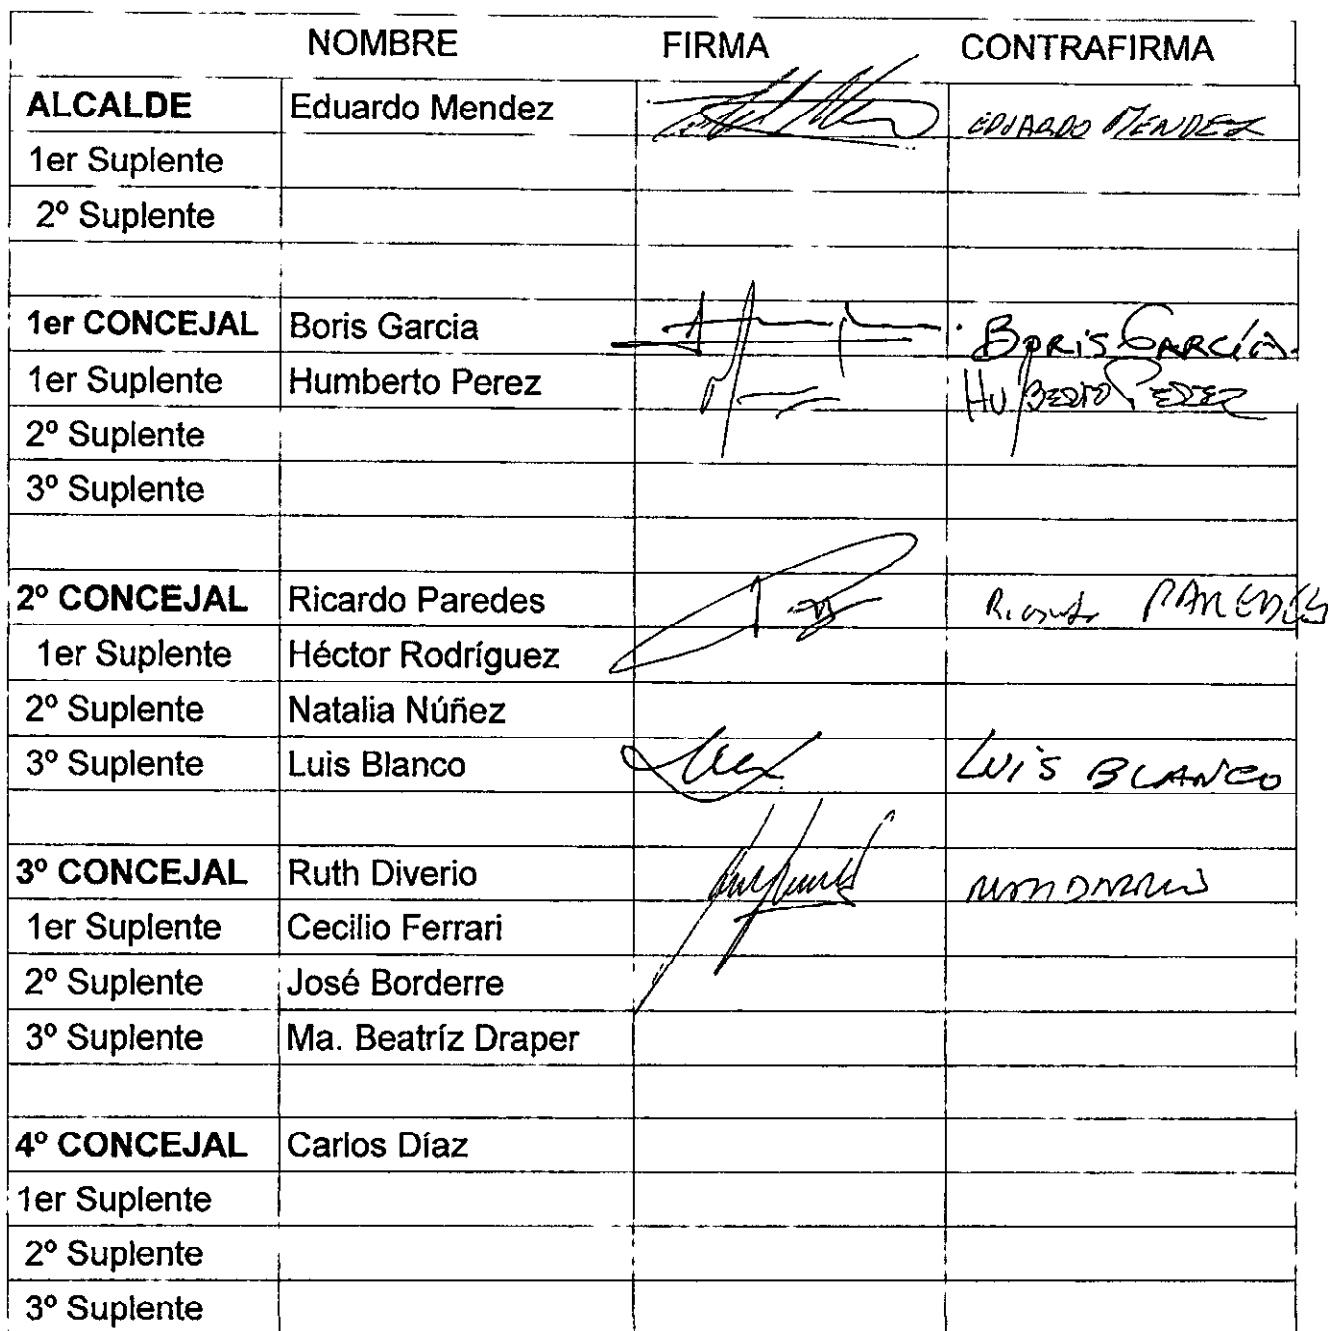 NOMBRE FIRMA CONTRAFIRMA
ALCALDE Eduardo Mendez EDUARDO MENDEZ
1er Suplente
2º Suplente
1er CONCEJAL Boris Garcia BORIS GARCÍA.
1er Suplente Humberto Perez HUMBERTO PEREZ
2º Suplente
3º Suplente
2º CONCEJAL Ricardo Paredes Ricardo PAREDES
1er Suplente Héctor Rodríguez
2º Suplente Natalia Núñez
3º Suplente Luis Blanco LUIS BLANCO
3º CONCEJAL Ruth Diverio
1er Suplente Cecilio Ferrari
2º Suplente José Borderre
3º Suplente Ma. Beatríz Draper
4º CONCEJAL Carlos Díaz
1er Suplente
2º Suplente
3º Suplente